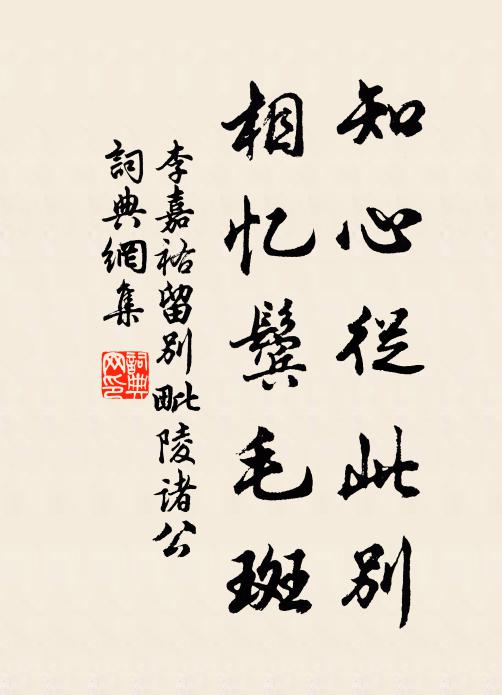 知心從此別
相忆鬓毛斑
李嘉祐留别毗陵諸公
詞典網集
詞典网印